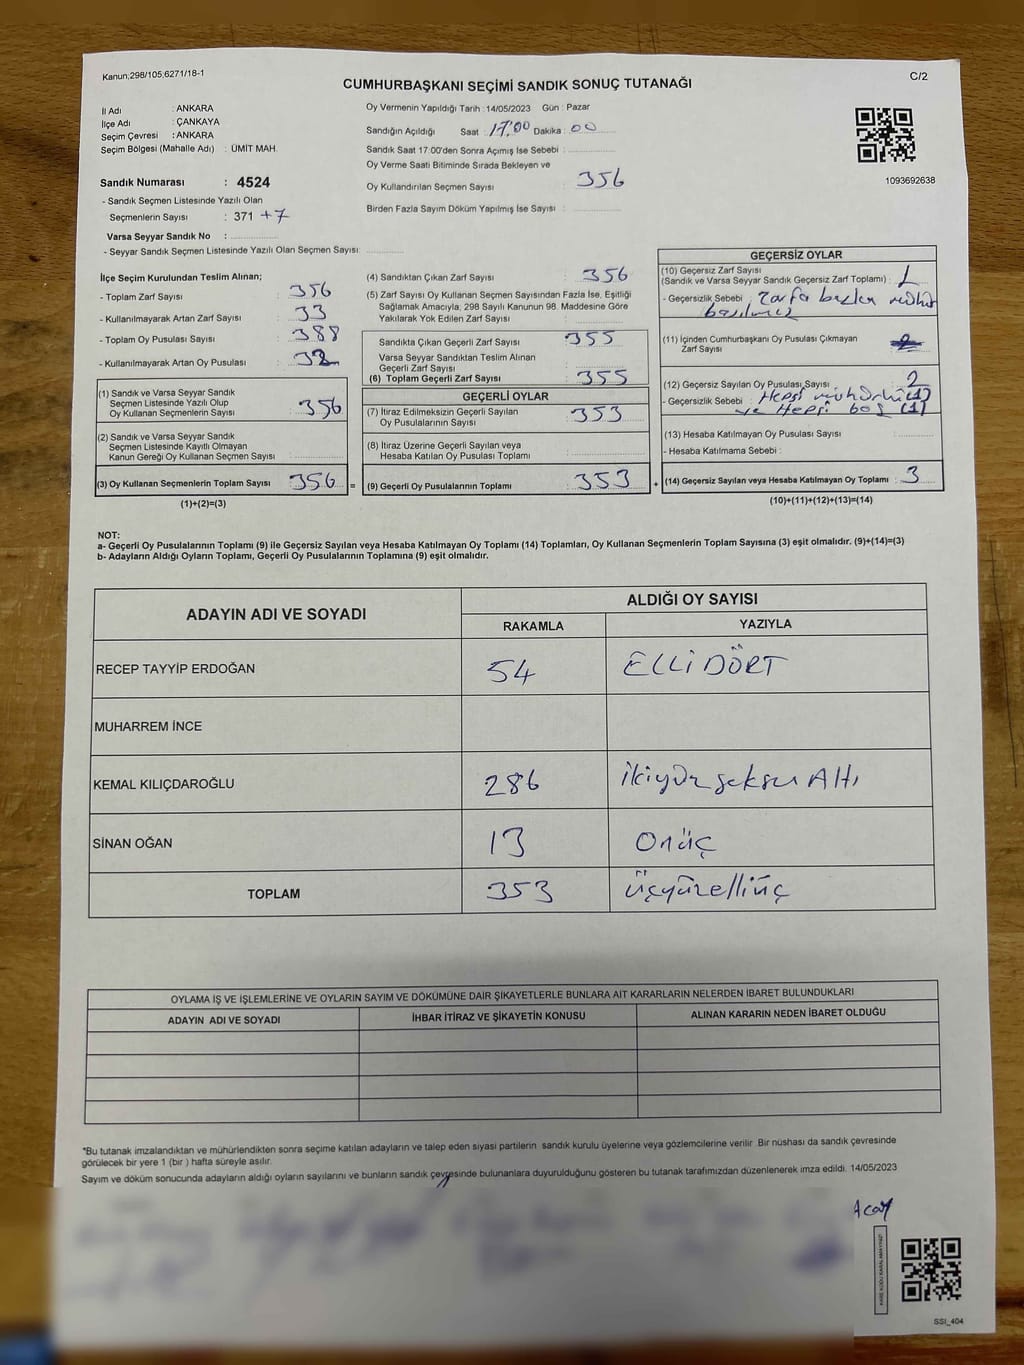 Kanun;298/105;6271/18-1
C/2
CUMHURBAŞKANI SEÇİMİ SANDIK SONUÇ TUTANAĞI
İl Adı : ANKARA
İlçe Adı : ÇANKAYA
Seçim Çevresi : ANKARA
Seçim Bölgesi (Mahalle Adı) : ÜMİT MAH.
Sandık Numarası : 4524
- Sandık Seçmen Listesinde Yazılı Olan
Seçmenlerin Sayısı : 371 +7
Varsa Seyyar Sandık No :
- Seyyar Sandık Seçmen Listesinde Yazılı Olan Seçmen Sayısı:
Oy Vermenin Yapıldığı Tarih : 14/05/2023 Gün : Pazar
Sandığın Açıldığı Saat : 17:00 Dakika : 00
Sandık Saat 17:00'den Sonra Açımış İse Sebebi :
Oy Verme Saati Bitiminde Sırada Bekleyen ve
Oy Kullandırılan Seçmen Sayısı : 356
Birden Fazla Sayım Döküm Yapılmış İse Sayısı :
1093692638
İlçe Seçim Kurulundan Teslim Alınan;
- Toplam Zarf Sayısı : 356
- Kullanılmayarak Artan Zarf Sayısı : 33
- Toplam Oy Pusulası Sayısı : 388
- Kullanılmayarak Artan Oy Pusulası : 32
(1) Sandık ve Varsa Seyyar Sandık
Seçmen Listesinde Yazılı Olup
Oy Kullanan Seçmenlerin Sayısı : 356
(2) Sandık ve Varsa Seyyar Sandık
Seçmen Listesinde Kayıtlı Olmayan
Kanun Gereği Oy Kullanan Seçmen Sayısı :
(3) Oy Kullanan Seçmenlerin Toplam Sayısı : 356 =
(1)+(2)=(3)
(4) Sandıktan Çıkan Zarf Sayısı : 356
(5) Zarf Sayısı Oy Kullanan Seçmen Sayısından Fazla İse, Eşitliği
Sağlamak Amacıyla, 298 Sayılı Kanunun 98. Maddesine Göre
Yakılarak Yok Edilen Zarf Sayısı :
Sandıkta Çıkan Geçerli Zarf Sayısı : 355
Varsa Seyyar Sandıktan Teslim Alınan
Geçerli Zarf Sayısı :
(6) Toplam Geçerli Zarf Sayısı : 355
GEÇERLİ OYLAR
(7) İtiraz Edilmeksizin Geçerli Sayılan
Oy Pusulalarının Sayısı : 353
(8) İtiraz Üzerine Geçerli Sayılan veya
Hesaba Katılan Oy Pusulası Toplamı :
(9) Geçerli Oy Pusulalarının Toplamı : 353 +
GEÇERSİZ OYLAR
(10) Geçersiz Zarf Sayısı
(Sandık ve Varsa Seyyar Sandık Geçersiz Zarf Toplamı) : 1
- Geçersizlik Sebebi : Zarfa başka mühür
basılmış
(11) İçinden Cumhurbaşkanı Oy Pusulası Çıkmayan
Zarf Sayısı :
(12) Geçersiz Sayılan Oy Pusulası Sayısı : 2
- Geçersizlik Sebebi : Hepsi mühürlü (1)
ve Hepsi boş (1)
(13) Hesaba Katılmayan Oy Pusulası Sayısı :
- Hesaba Katılmama Sebebi :
(14) Geçersiz Sayılan veya Hesaba Katılmayan Oy Toplamı : 3
(10)+(11)+(12)+(13)=(14)
NOT:
a- Geçerli Oy Pusulalarının Toplamı (9) ile Geçersiz Sayılan veya Hesaba Katılmayan Oy Toplamı (14) Toplamları, Oy Kullanan Seçmenlerin Toplam Sayısına (3) eşit olmalıdır. (9)+(14)=(3)
b- Adayların Aldığı Oyların Toplamı, Geçerli Oy Pusulalarının Toplamına (9) eşit olmalıdır.
ADAYIN ADI VE SOYADI ALDIĞI OY SAYISI
RAKAMLA YAZIYLA
RECEP TAYYİP ERDOĞAN 54 ELLİ DÖRT
MUHARREM İNCE
KEMAL KILIÇDAROĞLU 286 ikiyüz seksen Altı
SİNAN OĞAN 13 Onüç
TOPLAM 353 üçyüzelliüç
OYLAMA İŞ VE İŞLEMLERİNE VE OYLARIN SAYIM VE DÖKÜMÜNE DAİR ŞİKAYETLERLE BUNLARA AİT KARARLARIN NELERDEN İBARET BULUNDUKLARI
ADAYIN ADI VE SOYADI İHBAR İTİRAZ VE ŞİKAYETİN KONUSU ALINAN KARARIN NEDEN İBARET OLDUĞU
*Bu tutanak imzalandıktan ve mühürlendikten sonra seçime katılan adayların ve talep eden siyasi partilerin sandık kurulu üyelerine veya gözlemcilerine verilir Bir nüshası da sandık çevresinde
görülecek bir yere 1 (bir ) hafta süreyle asılır.
Sayım ve döküm sonucunda adayların aldığı oyların sayılarını ve bunların sandık çevresinde bulunanlara duyurulduğunu gösteren bu tutanak tarafımızdan düzenlenerek imza edildi. 14/05/2023
KARE KODU KARALAMAYINIZ!
SSI_404